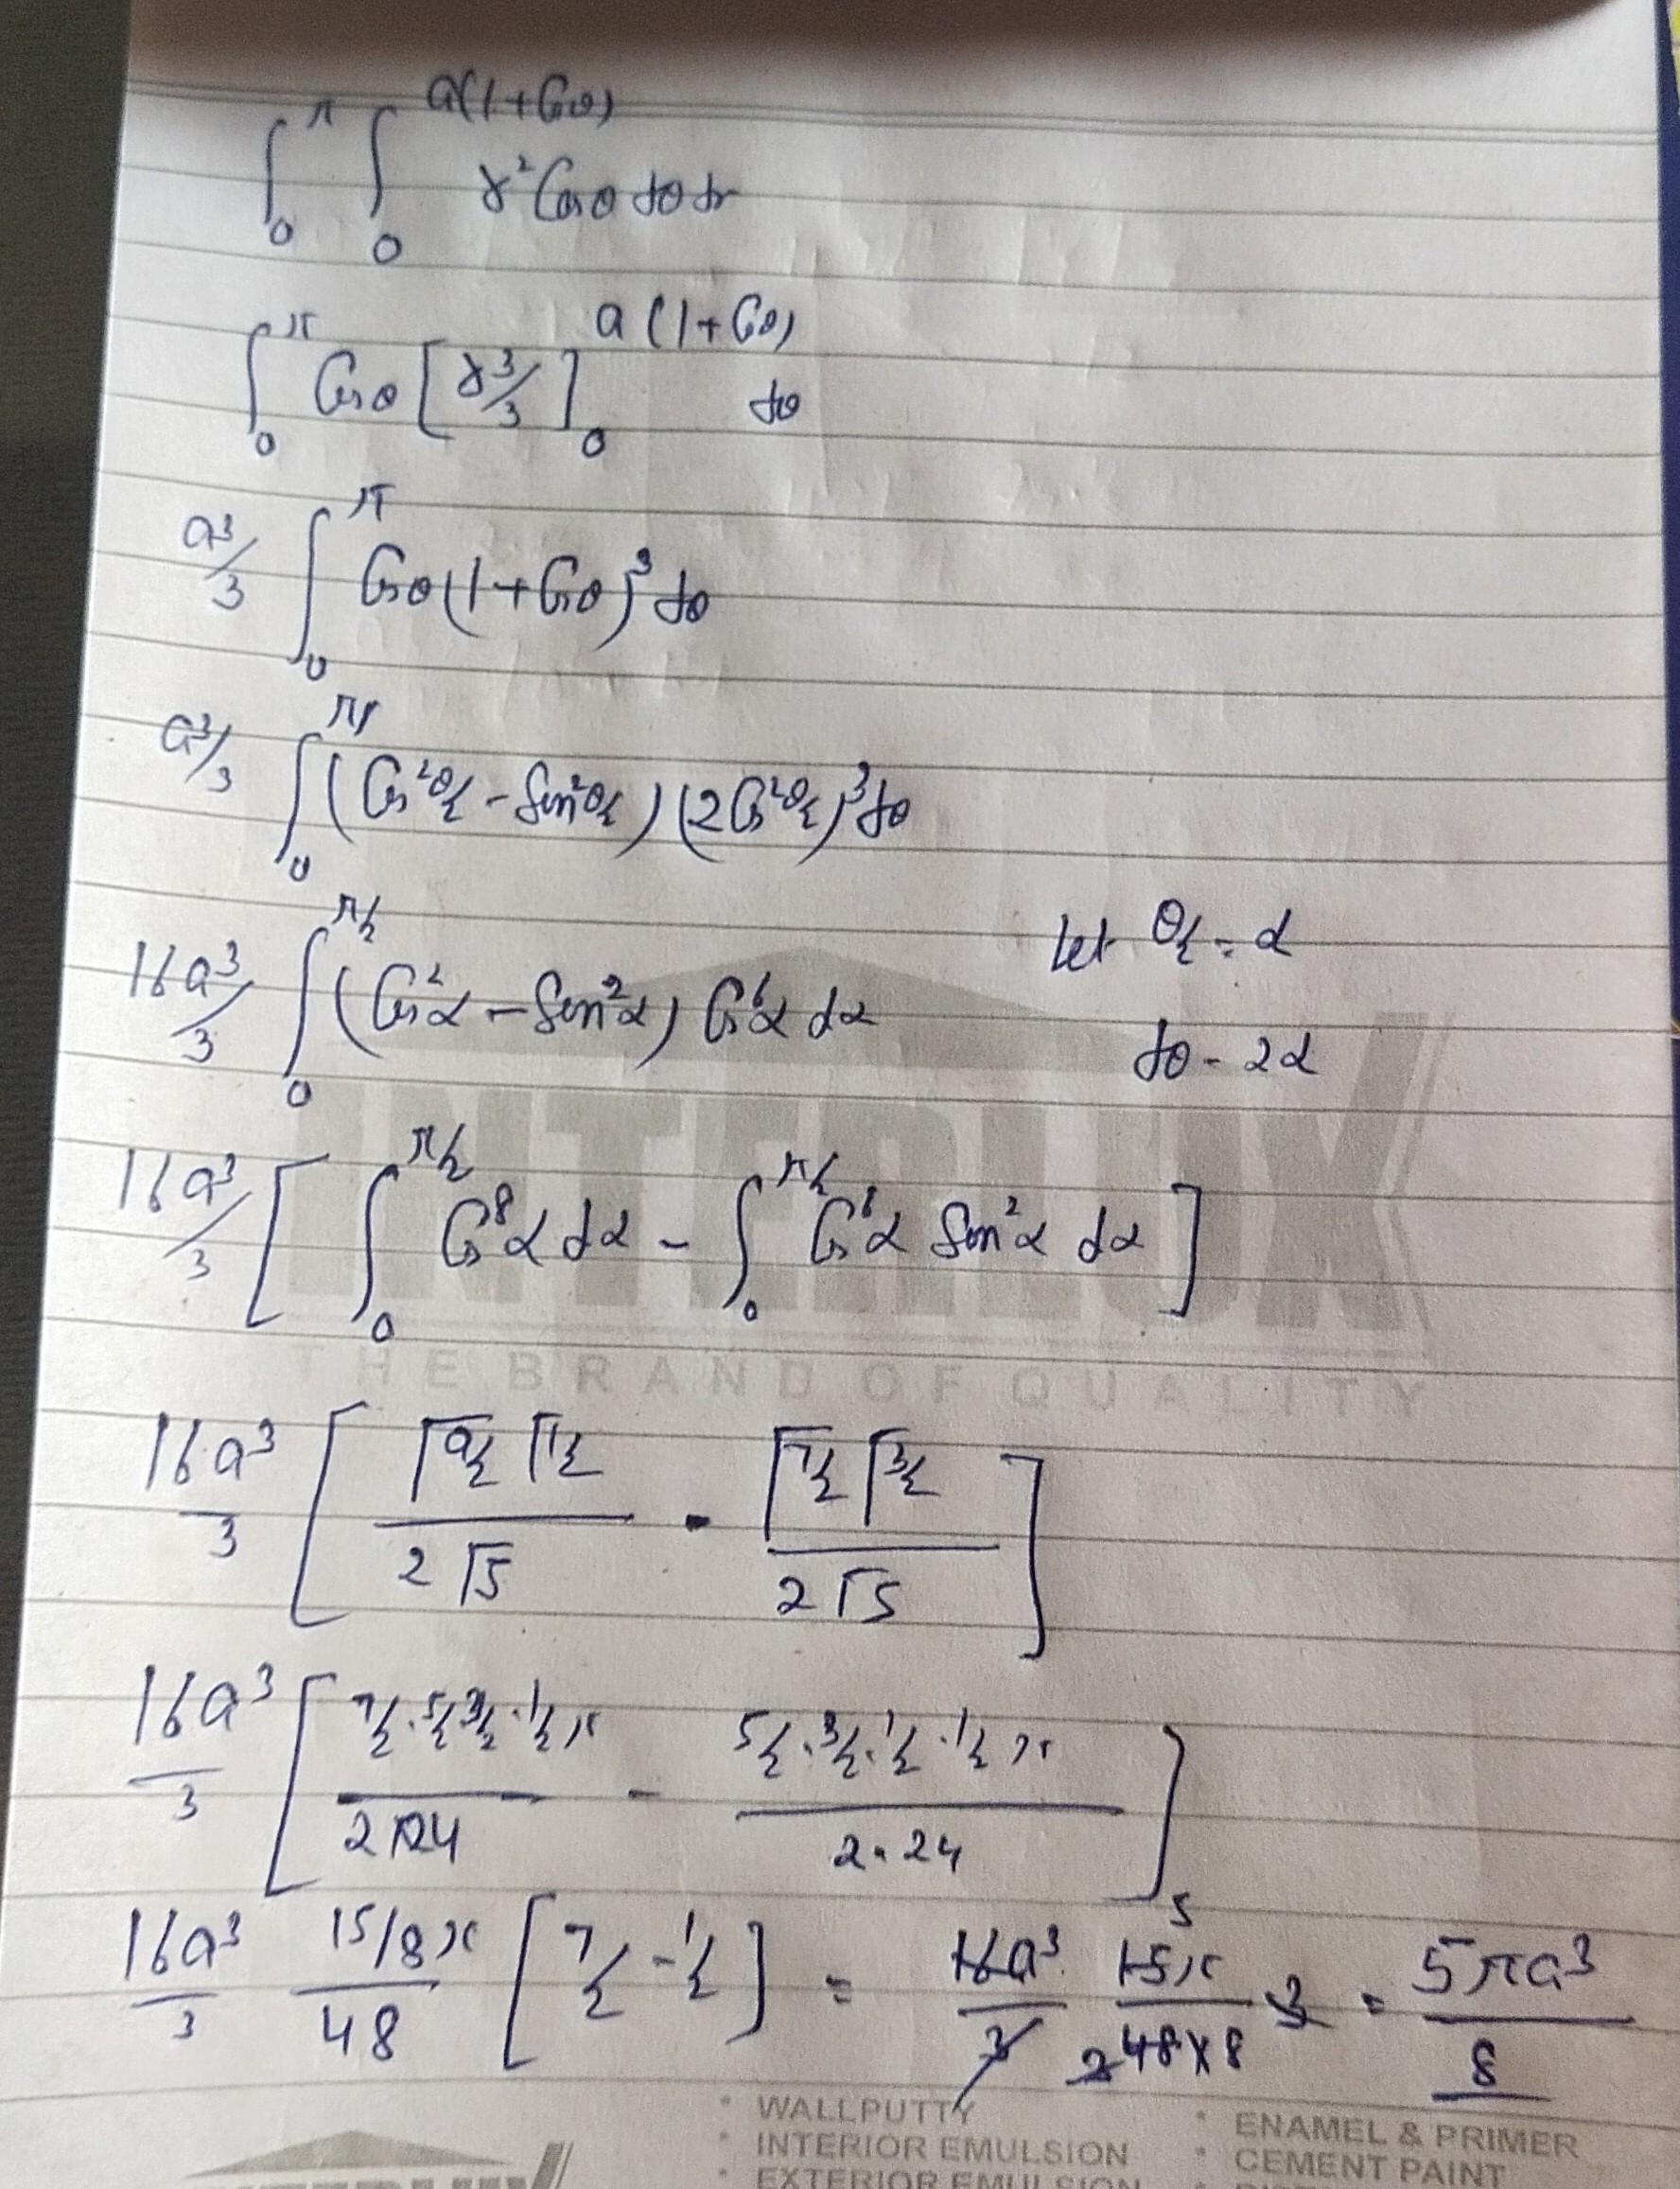 ∫₀^π ∫₀^{a(1+Cosθ)} r² Cosθ dθ dr
∫₀^π Cosθ [r³/3]₀^{a(1+Cosθ)} dθ
a³/3 ∫₀^π Cosθ(1+Cosθ)³ dθ
a³/3 ∫₀^π (Cos²θ/2 - Sin²θ/2) (2Cos²θ/2)³ dθ
16a³/3 ∫₀^{π/2} (Cos²α - Sin²α) Cos⁶α dα let θ/2 = α
dθ - 2α
16a³/3 [ ∫₀^{π/2} Cos⁸α dα - ∫₀^{π/2} Cos⁶α Sin²α dα ]
16a³/3 [ Γ9/2 Γ1/2 / 2Γ5 - Γ7/2 Γ3/2 / 2Γ5 ]
16a³/3 [ 7/2·5/2·3/2·1/2 π / 2×24 - 5/2·3/2·1/2·1/2 π / 2·24 ]
16a³/3 15/8π/48 [7/2 - 1/2] = 16a³/3 15π/48×8 3 = 5πa³/8
5
INTERLUX
THE BRAND OF QUALITY
INTERLUX
• WALLPUTTY
• INTERIOR EMULSION
EXTERIOR EMULSION
• ENAMEL & PRIMER
• CEMENT PAINT